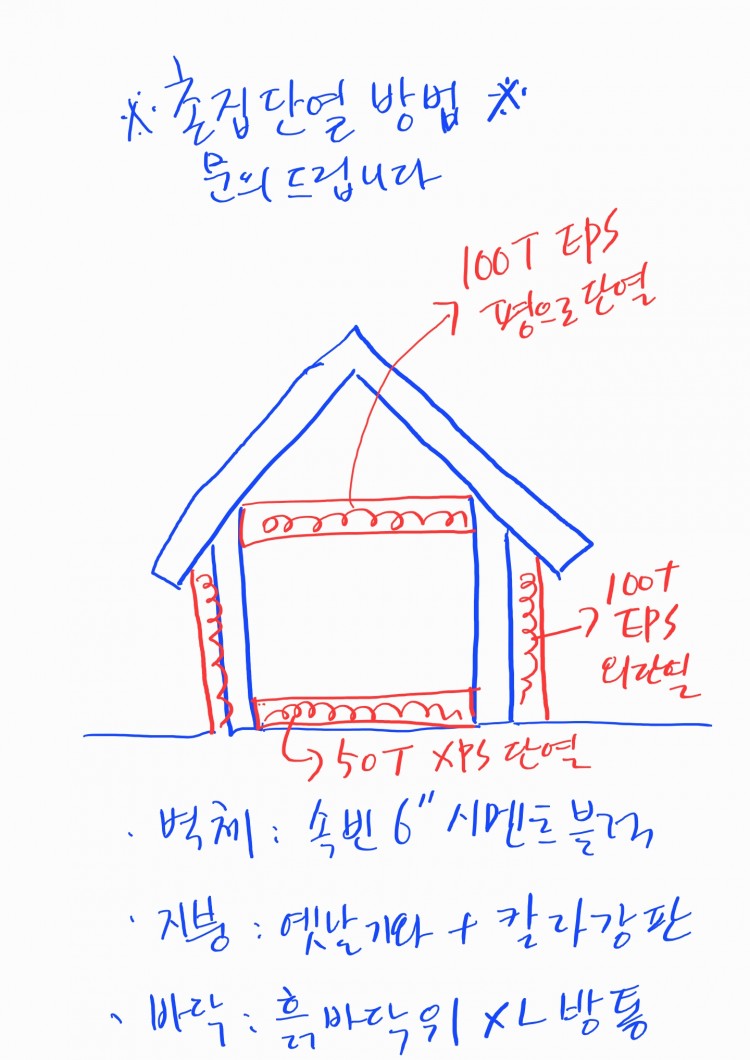 ※ 촌집단열 방법 ※
문의 드립니다
100T EPS
평으로 단열
100T
EPS
외단열
50T XPS 단열
· 벽체 : 속빈 6" 시멘트 블럭
· 지붕 : 옛날기와 + 칼라강판
· 바닥 : 흙바닥위 XL 방통